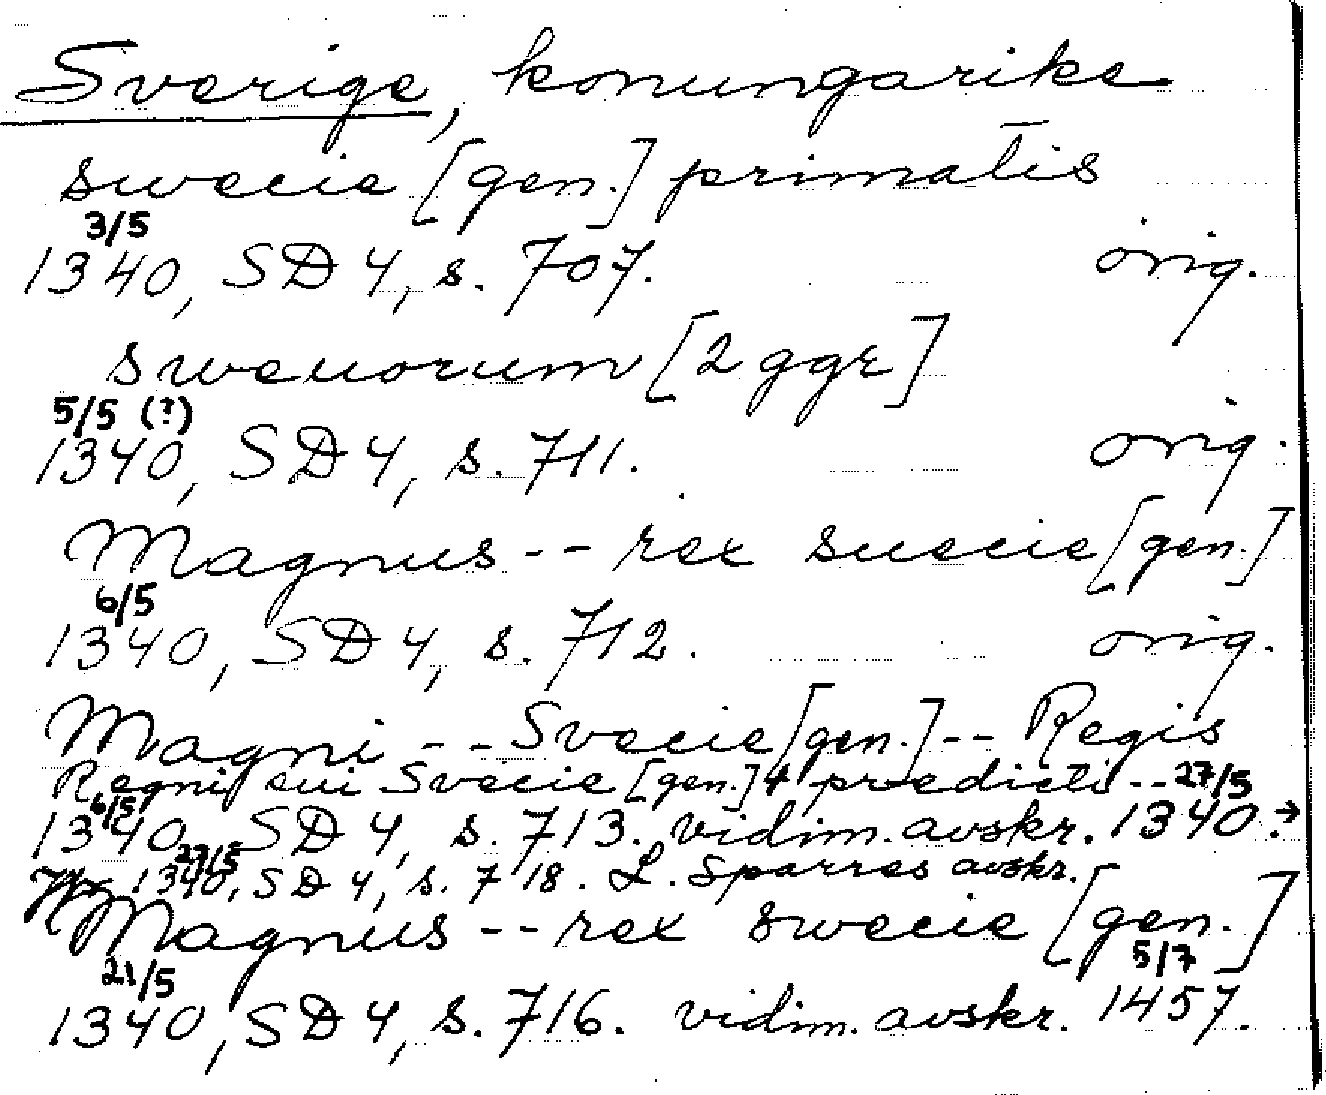 Sverige, konungarike
swecie [gen.] primatis
3/5
1340, SD 4, s. 707. orig.
sweuorum [2 ggr]
5/5 (?)
1340, SD 4, s. 711. orig.
Magnus -- rex suecie [gen.]
6/5
1340, SD 4, s. 712. orig.
Magni -- Svecie [gen.] -- Regis
Regni sui Svecie [gen.] predicti -- 27/5
6/5
1340, SD 4, s. 713. vidim. avskr. 1340. →
27/5
1340, SD 4, s. 718. L. Sparres avskr.
Magnus -- rex swecie [gen.]
21/5 5/7
1340, SD 4, s. 716. vidim. avskr. 1457.